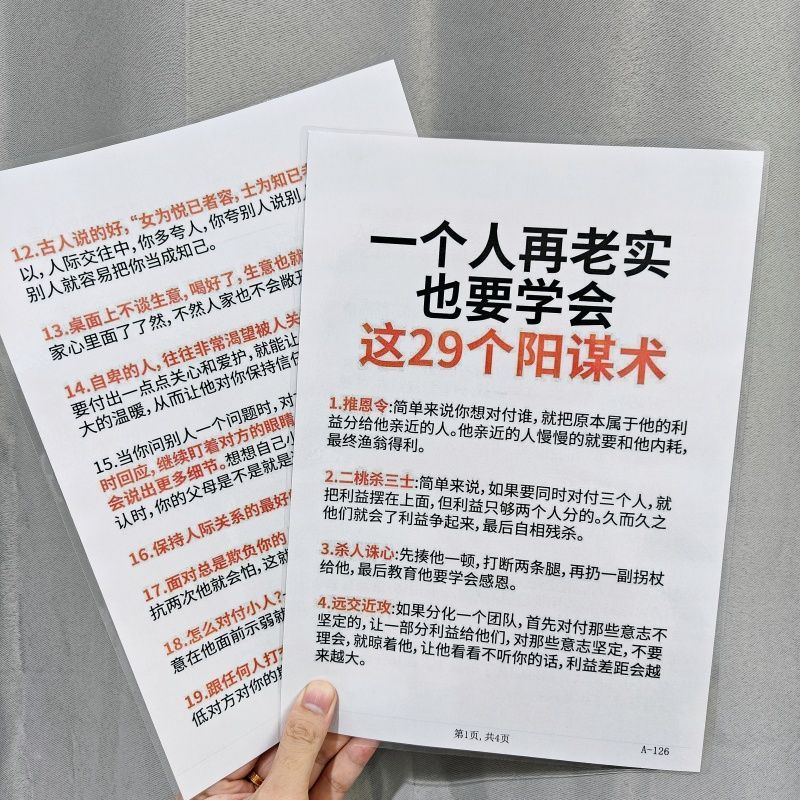 一个人再老实
也要学会
这29个阳谋术
1.推恩令:简单来说你想对付谁,就把原本属于他的利
益分给他亲近的人。他亲近的人慢慢的就要和他内耗,
最终渔翁得利。
2.二桃杀三士:简单来说,如果要同时对付三个人,就
把利益摆在上面,但利益只够两个人分的。久而久之
他们就会了利益争起来,最后自相残杀。
3.杀人诛心:先揍他一顿,打断两条腿,再扔一副拐杖
给他,最后教育他要学会感恩。
4.远交近攻:如果分化一个团队,首先对付那些意志不
坚定的,让一部分利益给他们,对那些意志坚定,不要
理会,就晾着他,让他看看不听你的话,利益差距会越
来越大。
第1页,共4页
A-126
12.古人说的好,“女为悦已者容,士为知已
以,人际交往中,你多夸人,你夸别人说别
别人就容易把你当成知己。
13.桌面上不谈生意,喝好了,生意也就
家心里面了了然,不然人家也不会敞开
14.自卑的人,往往非常渴望被人关
要付出一点点关心和爱护,就能让
大的温暖,从而让他对你保持信任
15.当你问别人一个问题时,对
时回应,继续盯着对方的眼睛
会说出更多细节。想想自己小
认时,你的父母是不是就是
16.保持人际关系的最好
17.面对总是欺负你的
抗两次他就会怕,这就
18.怎么对付小人?
意在他面前示弱就
19.跟任何人打
低对方对你的